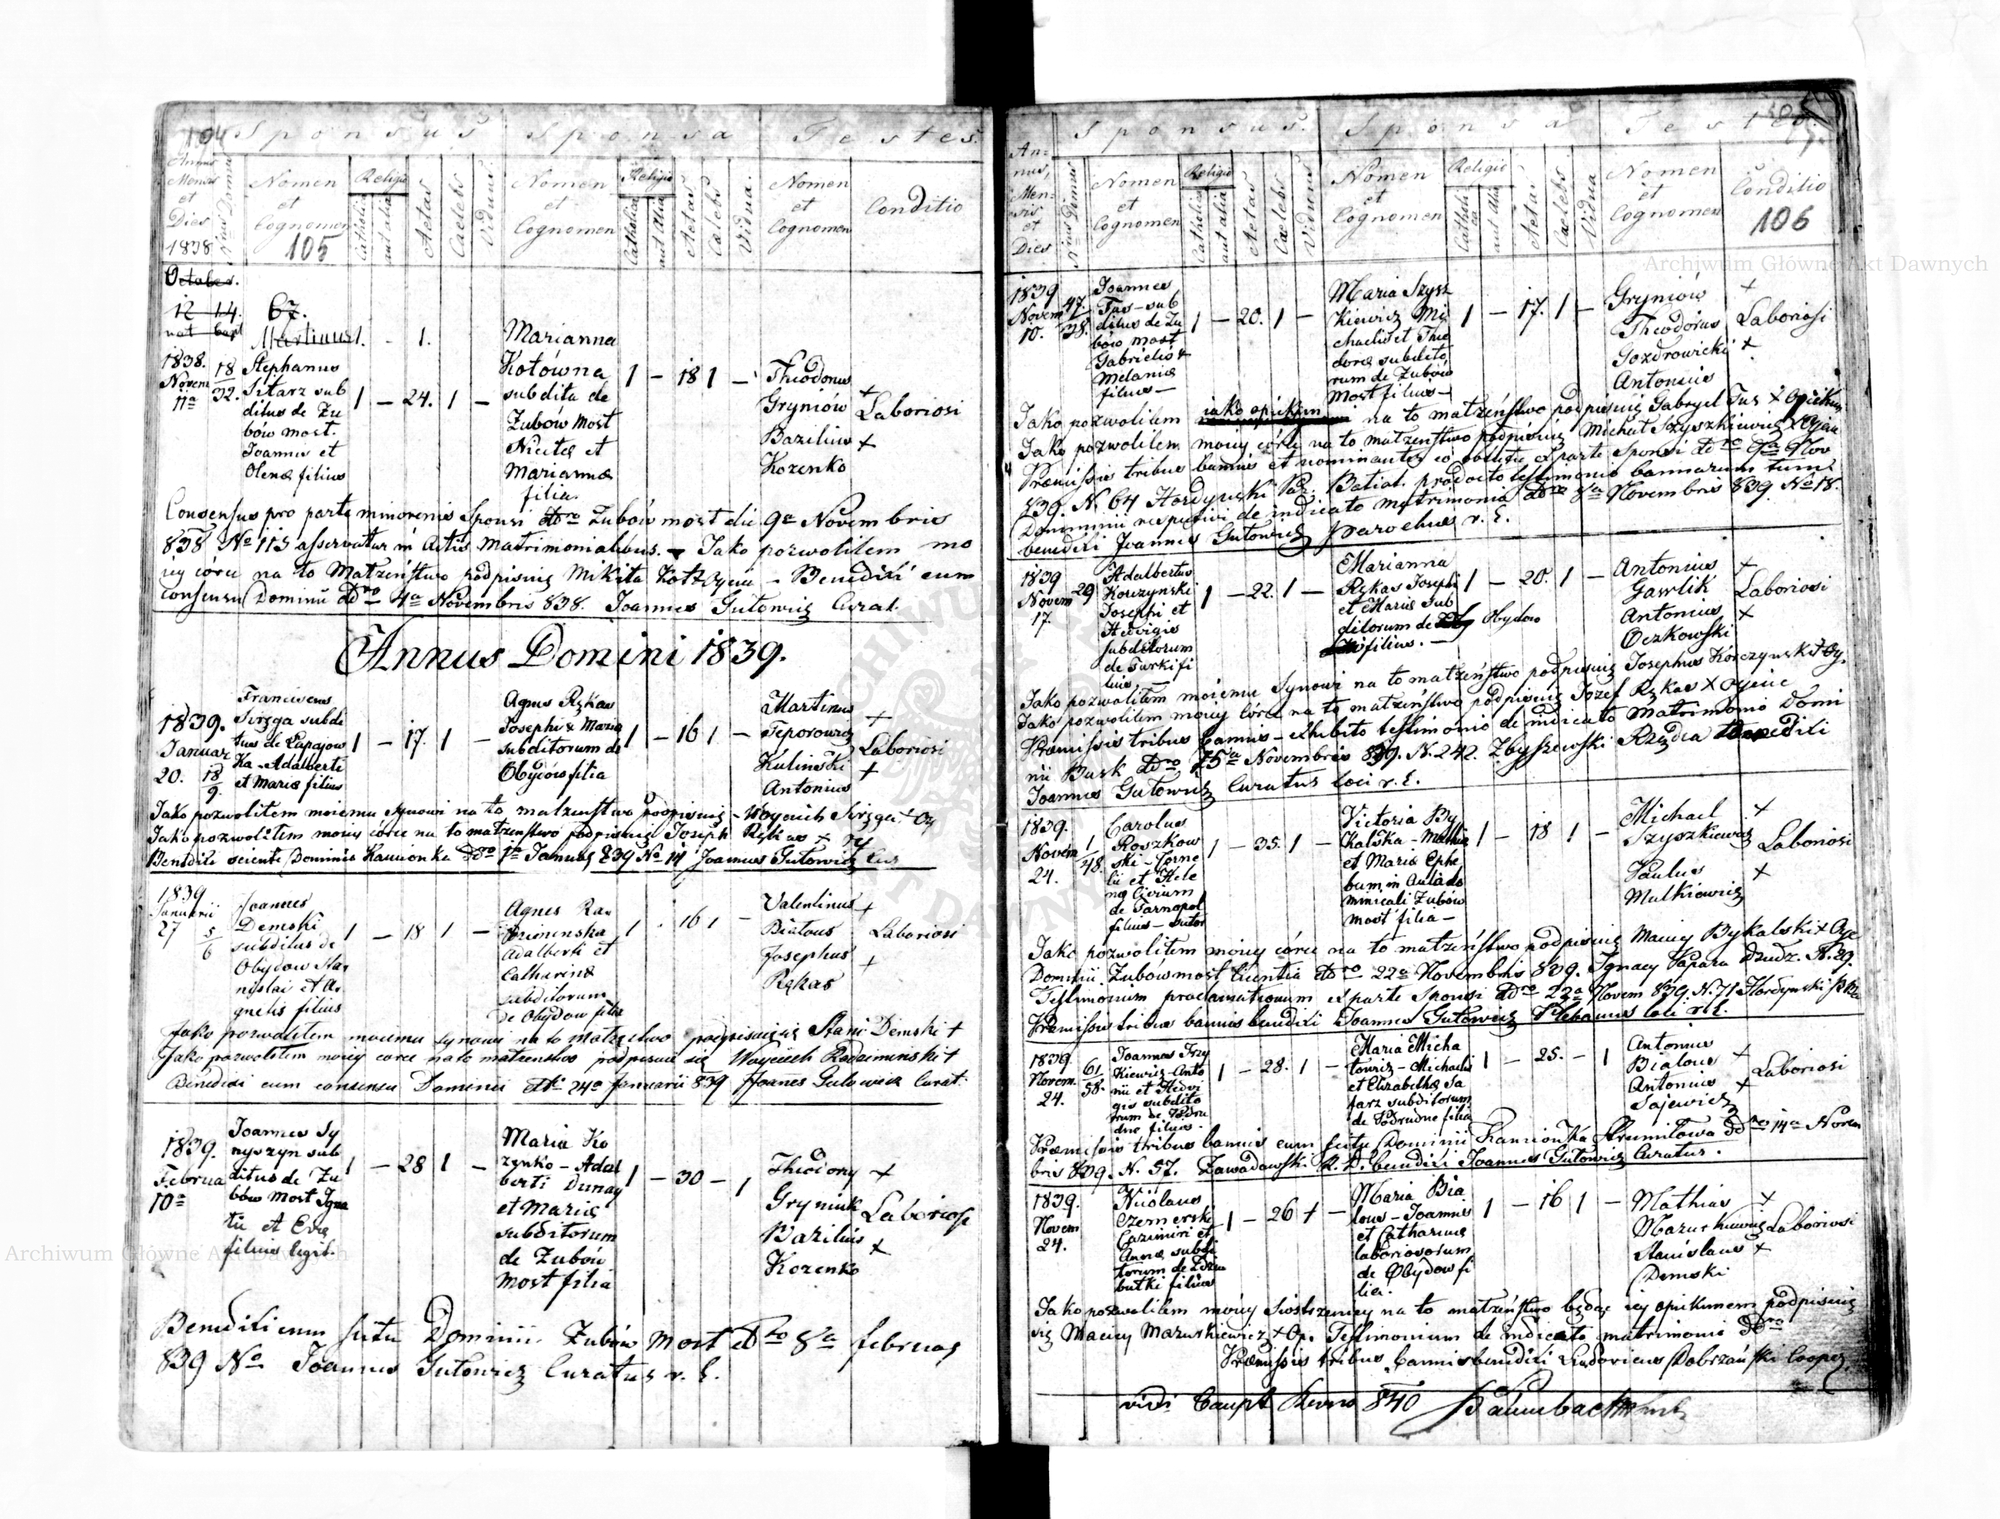 104
Sponsus
Sponsa
Testes
Annus
Mensis
et
Dies
1838
Nrus Domus
Nomen
et
Cognomen
105
Religio
Catholica
aut alia
Aetas
Caelebs
Viduus
Nomen
et
Cognomen
Religio
Catholica
aut Alia
Aetas
Caelebs
Vidua
Nomen
et
Cognomen
Conditio
October.
12 14 67.
nat bapt Martinus 1. - 1.
1838.
Novem
11a
18
32.
Stephanus
Sitarz sub
ditus de Zu
bów most.
Joannis et
Olenae filius
1 - 24. 1 -
Marianna
Kotówna
subdita de
Zubów Most
Nicetae et
Mariannae
filia.
1 - 18 1 -
Theodorus
Gryniów +
Bazilius +
Kozenko
Laboriosi
Consensus pro parte minorenis Sponsi ddto Zubów most die 9a Novembris
838 No 115 asservatur in Actis Matrimonialibus. - Jako pozwolilem mo
jey córce na to Matzeństwo podpisuię Mikita Kot + Oyciec - Benedixi cum
consensu Dominii ddto 4a Novembris 838. Joannes Gutowicz Curat.
Annus Domini 1839.
1839.
Januar
20.
18
9.
Franciscus
Siręga subdi
tus de Łapajow
ka - Adalberti
et Mariae filius
1 - 17. 1 -
Agnes Rękas
Josephi & Mariae
subditorum de
Obydów filia
1 - 16 1 -
Martinus +
Teporowicz
Kulinski +
Antonius
Laboriosi
Jako pozwolilem moiemu synowi na to matzenstwo podpisuię - Woyciech Siręga + Oy
Jako pozwolilem moiey córce na to matzenstwo podpisuię Joseph Rękas + oy
Benedixi sciente Dominio Kamionka ddto 1a Januar 839 No 14 Joannes Gutowicz Cur
1839
Januarii
27
5
6
Joannes
Demski
subditus de
Obydow Sta
nislai et A
gnetis filius
1 - 18 1 -
Agnes Ra
dziminska
Adalberti et
Catharinae
subditorum
de Obydow filia
1 - 16 1 -
Valentinus +
Białous
Josephus +
Rękas
Laboriosi
Jako pozwolilem moiemu synowi na to matzenstwo podpisuięsię Stani Demski +
Jako pozwolilem moiey corce na to matzenstwo podpisuie się Woyciech Radziminski +
Benedixi cum consensu Dominii ddto 24a Januarii 839 Joannes Gutowicz Curat.
1839.
Februa
10a
Joannes Sy
nyszyn sub
ditus de Zu
bów Most Igna
tii et Evae
filius legit.
1 - 28 1 -
Maria Ko
zenko - Adal
berti Dunay
et Mariae
subditorum
de Zubów
Most filia
1 - 30 - 1
Theodory +
Gryniuk
Bazilius +
Kozenko
Laboriosi
Benedixi cum scitu Dominii Zubów Most ddto 8va februar
839 No Joannes Gutowicz Curatus r. l.
Sponsus.
Sponsa
Testes.
An-
nus,
Men-
sis
et
Dies
Nrus Domus
Nomen
et
Cognomen
Religio
Catholica
aut alia
Aetas
Caelebs
Viduus
Nomen
et
Cognomen
Religio
Catholica
aut Alia
Aetas
Caelebs
Vidua
Nomen
et
Cognomen
Conditio
106
1839
Novem
10.
47.
38.
Joannes
Tus - sub
ditus de Zu
bów most
Gabrielis &
Melaniae
filius -
1 - 20. 1 -
Maria Szysz
kiewicz Mi
chaelis et Theo
dorae subdito
rum de Zubów
Most filius -
1 - 17. 1 -
Gryniów +
Theodorus
Gozdrowicki +
Antonius
Laboriosi
Jako pozwolilem iako opiekun na to matzeństwo podpisuię Gabryel Tus + Opiekun
Jako pozwolilem moiey córce na to matzeństwo podpisuię Michał Szyszkiewicz + Oyciec
Praemissis tribus bannis et ex parte Sponsi ddto 9a Nov
839. N. 64 Hordynski testimonio bannorum tum
Dominii respectivi de indicato matrimonio ddto 8a Novembris 839 No 18.
benedixi Joannes Gutowicz Parochus r. l.
1839
Novem
17.
29
Adalbertus
Korczynski
Josephi et
Hedvigis
subditorum
de Surki fi
lius. -
1 - 22. 1 -
Marianna
Rękas Josephi
et Mariae sub
ditorum de Obydów
filius. -
1 - 20. 1 -
Antonius +
Gawlik
Antonius +
Oczkowski
Laboriosi
Jako pozwolilem moiemu Synowi na to matzeństwo podpisuię Josephus Korczynski + Oy.
Jako pozwolilem moiey Córce na to matzeństwo podpisuię Jozef Rękas + oyciec
Praemissis tribus bannis - exhibito testimonio de indicato Matrimonio Domi
nii Busk ddto 15a Novembris 839. N. 242. Zbyszewski Rządca Benedixi
Joannes Gutowicz Curatus loci r. l.
1839.
Novem
24.
1
48.
Carolus
Roszkow
ski - Corne
lii et Hele
nae Civium
de Tarnopol
filius - sutor
1 - 35. 1 -
Victoria By
kalska - Mathiae
et Mariae Ephe
bum in Aula do
minicali Zubów
most filia -
1 - 18 1 -
Michael +
Szyszkiewicz
Paulus +
Mulkiewicz
Laboriosi
Jako pozwolilem moiey córce na to matzeństwo podpisuię Maciey Bykalski + Oyc
Dominii Zubów most licentia ddto 22a Novembris 839. Ignacy Papara Dzedz. N. 29.
Testimonium proclamationum ex parte Sponsi ddto 23a Novem 839. N. 71 Hordynski
Praemissis tribus bannis benedixi Joannes Gutowicz Plebanus loci r. l.
1839.
Novem.
24.
61
58.
Joannes Trzy
kiewicz - Anto
nii et Hedvi
gis subdito
rum de Podru
dne filius.
1 - 28. 1 -
Maria Micha
towicz - Michaelis
et Elizabethae Sa
tarz subditorum
de Podrudne filia
1 - 25. - 1
Antonius +
Białous
Antonius +
Sajewicz
Laboriosi
Praemissis tribus bannis cum scitu Dominii Kamionka Strumiłowa ddto 14a Novem
bris 839. N. 57. Zawadowski benedixi Joannes Gutowicz Curatus.
1839.
Novem
24.
Nicolaus
Czemerski
Cazimiri et
Annae subdi
torum de
butki filius
1 - 26 1 -
Maria Bia
lous - Joannis
et Catharinae
laboriosorum
de Obydow fi
lia.
1 - 16 1 -
Mathias +
Mazurkiewicz
Stanislaus +
Demski
Laboriosi
Jako pozwolilem moiey Siostrzenicy na to matzeństwo będąc iey opiekunem podpisuię
się Maciey Mazurkiewicz + Op. Testimonium de indicato matrimonio ddto
Praemissis tribus bannis benedixi Ludovicus Dobrzański Cooper.
vidi 840
Archiwum Główne Akt Dawnych
Archiwum Główne Akt Dawnych